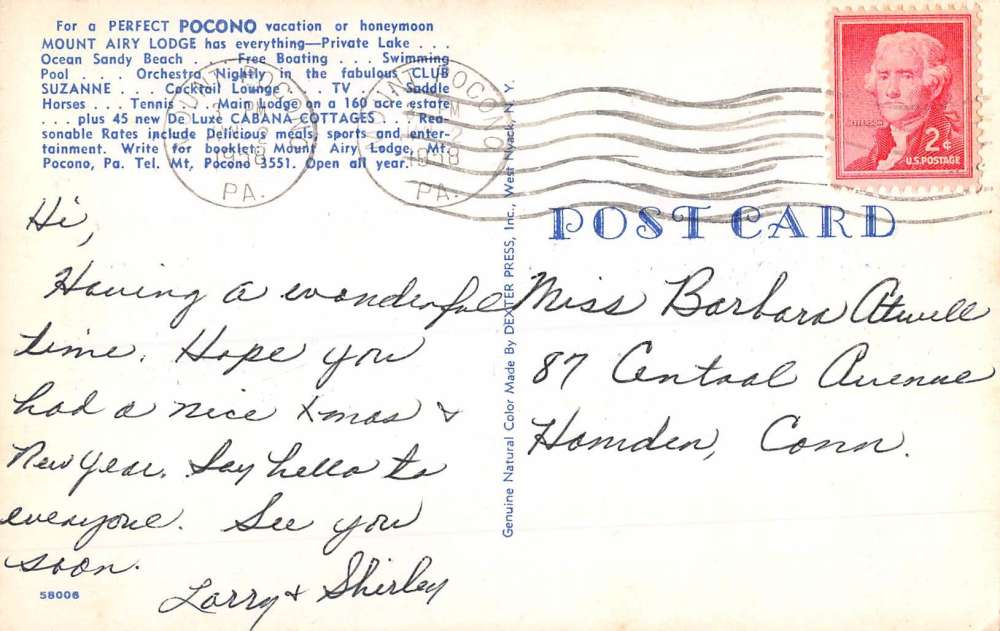 For a PERFECT POCONO vacation or honeymoon
MOUNT AIRY LODGE has everything—Private Lake . . .
Ocean Sandy Beach . . . Free Boating . . . Swimming
Pool . . . Orchestra Nightly in the fabulous CLUB
SUZANNE . . . Cocktail Lounge . . . TV . . . Saddle
Horses . . . Tennis . . . Main Lodge on a 160 acre estate
. . . plus 45 new De Luxe CABANA COTTAGES . . . Rea-
sonable Rates include Delicious meals, sports and enter-
tainment. Write for booklet: Mount Airy Lodge, Mt.
Pocono, Pa. Tel. Mt, Pocono 3551. Open all year.
MOUNT POCONO
PM
1958
PA.
MOUNT POCONO
PM
2
1958
PA.
JEFFERSON
2¢
U.S. POSTAGE
POST CARD
Hi,
Having a wonderful
time. Hope you
had a nice Xmas &
New Year. Say hello to
everyone. See you
soon.
Larry & Shirley
58006
Genuine Natural Color Made By DEXTER PRESS, Inc., West Nyack, N. Y.
Miss Barbara Atwell
87 Central Avenue
Hamden, Conn.